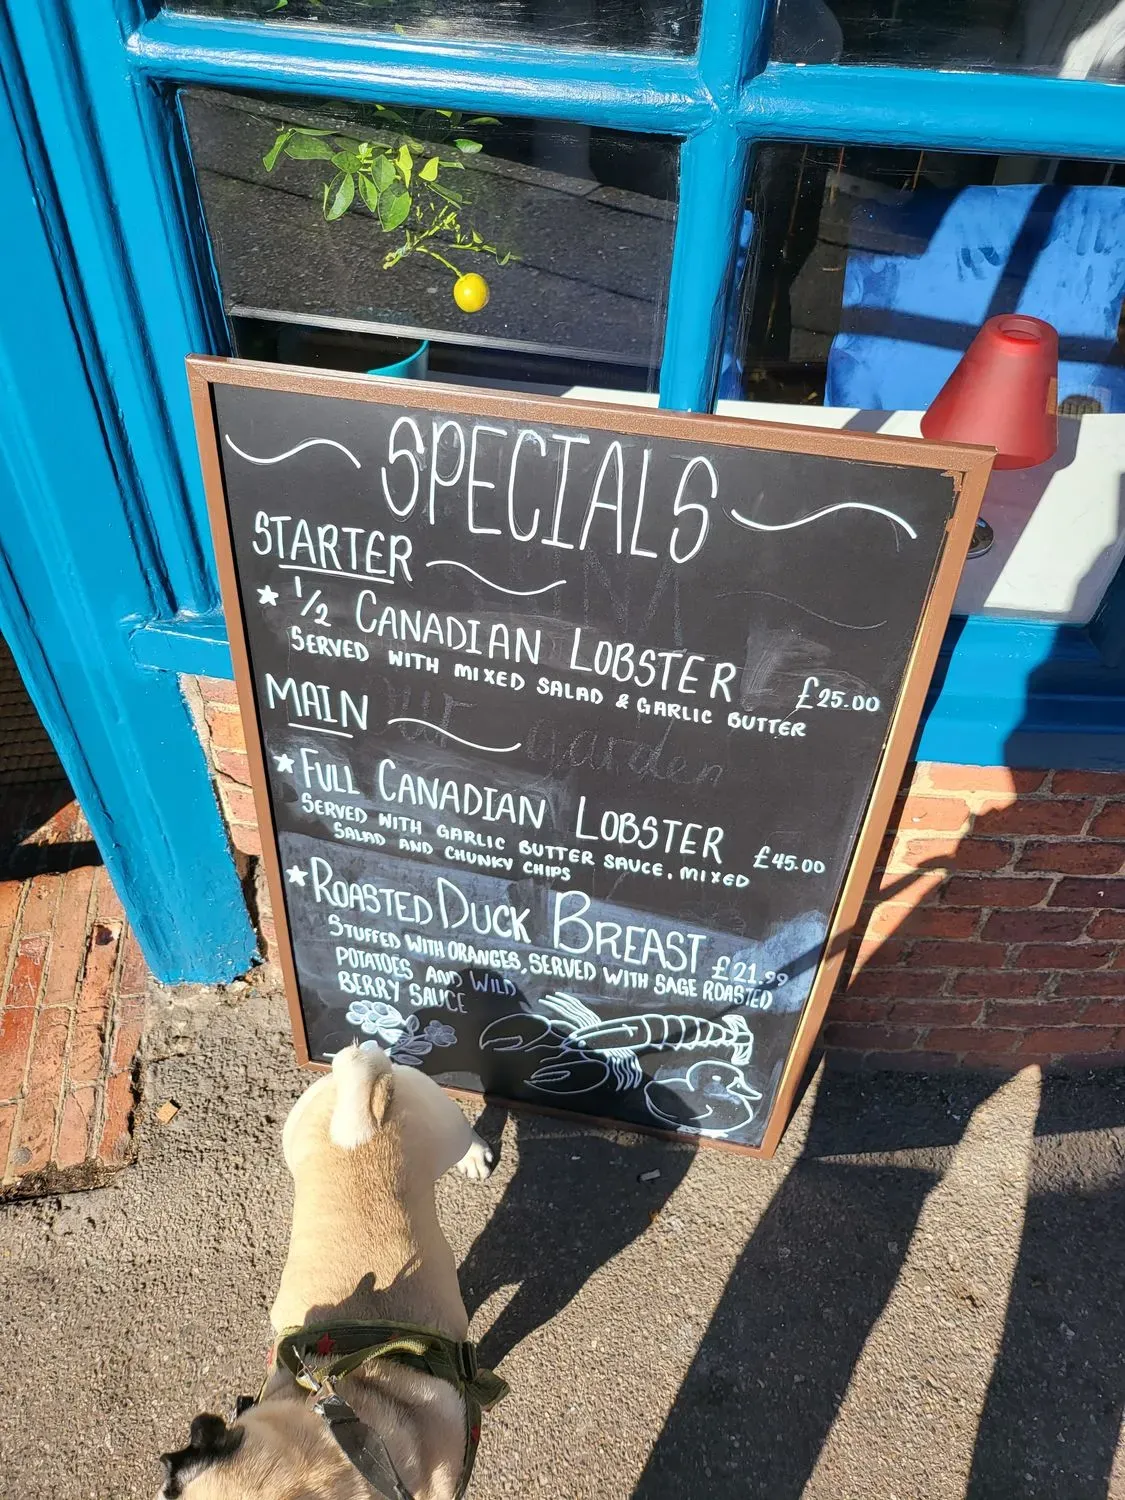 SPECIALS
STARTER
★ 1/2 CANADIAN LOBSTER
SERVED WITH MIXED SALAD & GARLIC BUTTER £25.00
MAIN
garden
★ FULL CANADIAN LOBSTER
SERVED WITH GARLIC BUTTER SAUCE, MIXED £45.00
SALAD AND CHUNKY CHIPS
★ ROASTED DUCK BREAST £21.99
STUFFED WITH ORANGES, SERVED WITH SAGE ROASTED
POTATOES AND WILD
BERRY SAUCE